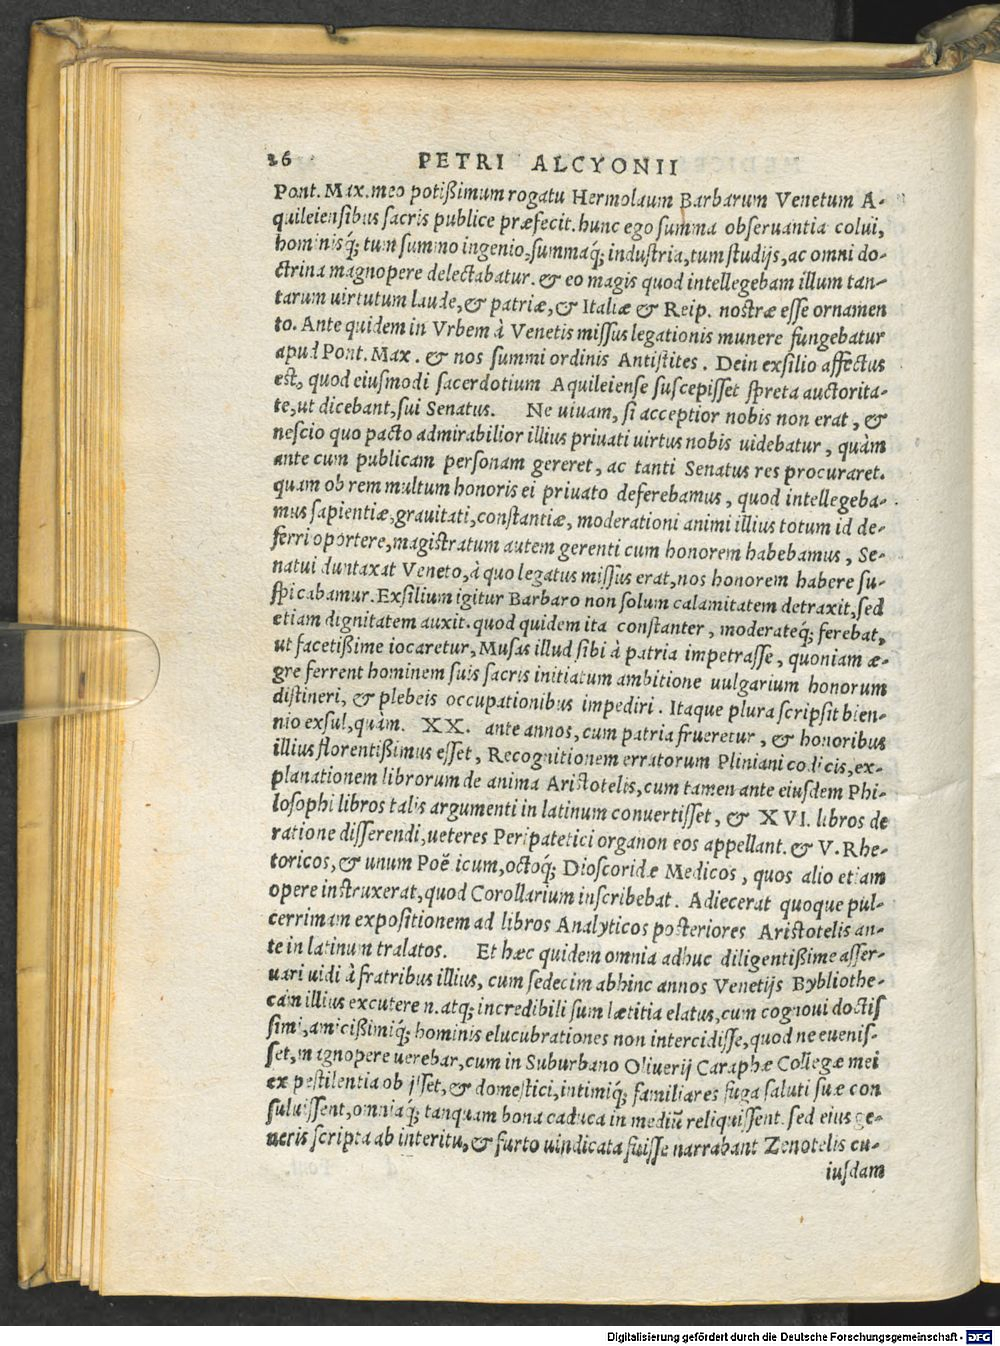 26 PETRI ALCYONII
Pont. Max. meo potißimum rogatu Hermolaum Barbarum Venetum A-
quileiensibus sacris publice præfecit. hunc ego summa obseruantia colui,
hominisq́; tum summo ingenio, summaq́; industria, tum studijs, ac omni do-
ctrina magnopere delectabatur. & eo magis quod intellegebam illum tan-
tarum uirtutum laude, & patriæ, & Italiæ & Reip. nostræ esse ornamen
to. Ante quidem in Vrbem à Venetis missus legationis munere fungebatur
apud Pont. Max. & nos summi ordinis Antistites. Dein exsilio affectus
est, quod eiusmodi sacerdotium Aquileiense suscepisset spreta auctorita-
te, ut dicebant, sui Senatus. Ne uiuam, si acceptior nobis non erat, &
nescio quo pacto admirabilior illius priuati uirtus nobis uidebatur, quàm
ante cum publicam personam gereret, ac tanti Senatus res procuraret.
quam ob rem multum honoris ei priuato deferebamus, quod intellegeba-
mus sapientiæ, grauitati, constantiæ, moderationi animi illius totum id de-
ferri oportere, magistratum autem gerenti cum honorem habebamus, Se-
natui duntaxat Veneto, à quo legatus missus erat, nos honorem habere su-
spicabamur. Exsilium igitur Barbaro non solum calamitatem detraxit, sed
etiam dignitatem auxit. quod quidem ita constanter, moderateq́; ferebat,
ut facetißime iocaretur, Musas illud sibi à patria impetrasse, quoniam æ-
gre ferrent hominem suis sacris initiatum ambitione uulgarium honorum
distineri, & plebeis occupationibus impediri. Itaque plura scripsit bien-
nio exsul, quàm. XX. ante annos, cum patria frueretur, & honoribus
illius florentißimus esset, Recognitionem erratorum Pliniani codicis, ex-
planationem librorum de anima Aristotelis, cum tamen ante eiusdem Phi-
losophi libros talis argumenti in latinum conuertisset, & XVI. libros de
ratione disserendi, ueteres Peripatetici organon eos appellant. & V. Rhe-
toricos, & unum Poë icum, octoq́; Dioscoridæ Medicos, quos alio etiam
opere instruxerat, quod Corollarium inscribebat. Adiecerat quoque pul-
cerrimam expositionem ad libros Analyticos posteriores Aristotelis an-
te in latinum tralatos. Et hæc quidem omnia adhuc diligentißime asser-
uari uidi à fratribus illius, cum sedecim abhinc annos Venetijs Bybliothe-
cam illius excuterem. atq; incredibili sum lætitia elatus, cum cognoui doctis
simi, amicißimiq́; hominis elucubrationes non intercidisse, quod ne euenis-
set, magnopere uerebar, cum in Suburbano Oliuerij Caraphæ Collegæ mei
ex pestilentia obijsset, & domestici, intimiq́; familiares fuga saluti suæ con
suluissent, omniaq́; tanquam bona caduca in mediũ reliquissent. sed eius ge-
neris scripta ab interitu, & furto uindicata fuisse narrabant Zenotelis cu-
iusdam
Digitalisierung gefördert durch die Deutsche Forschungsgemeinschaft - DFG